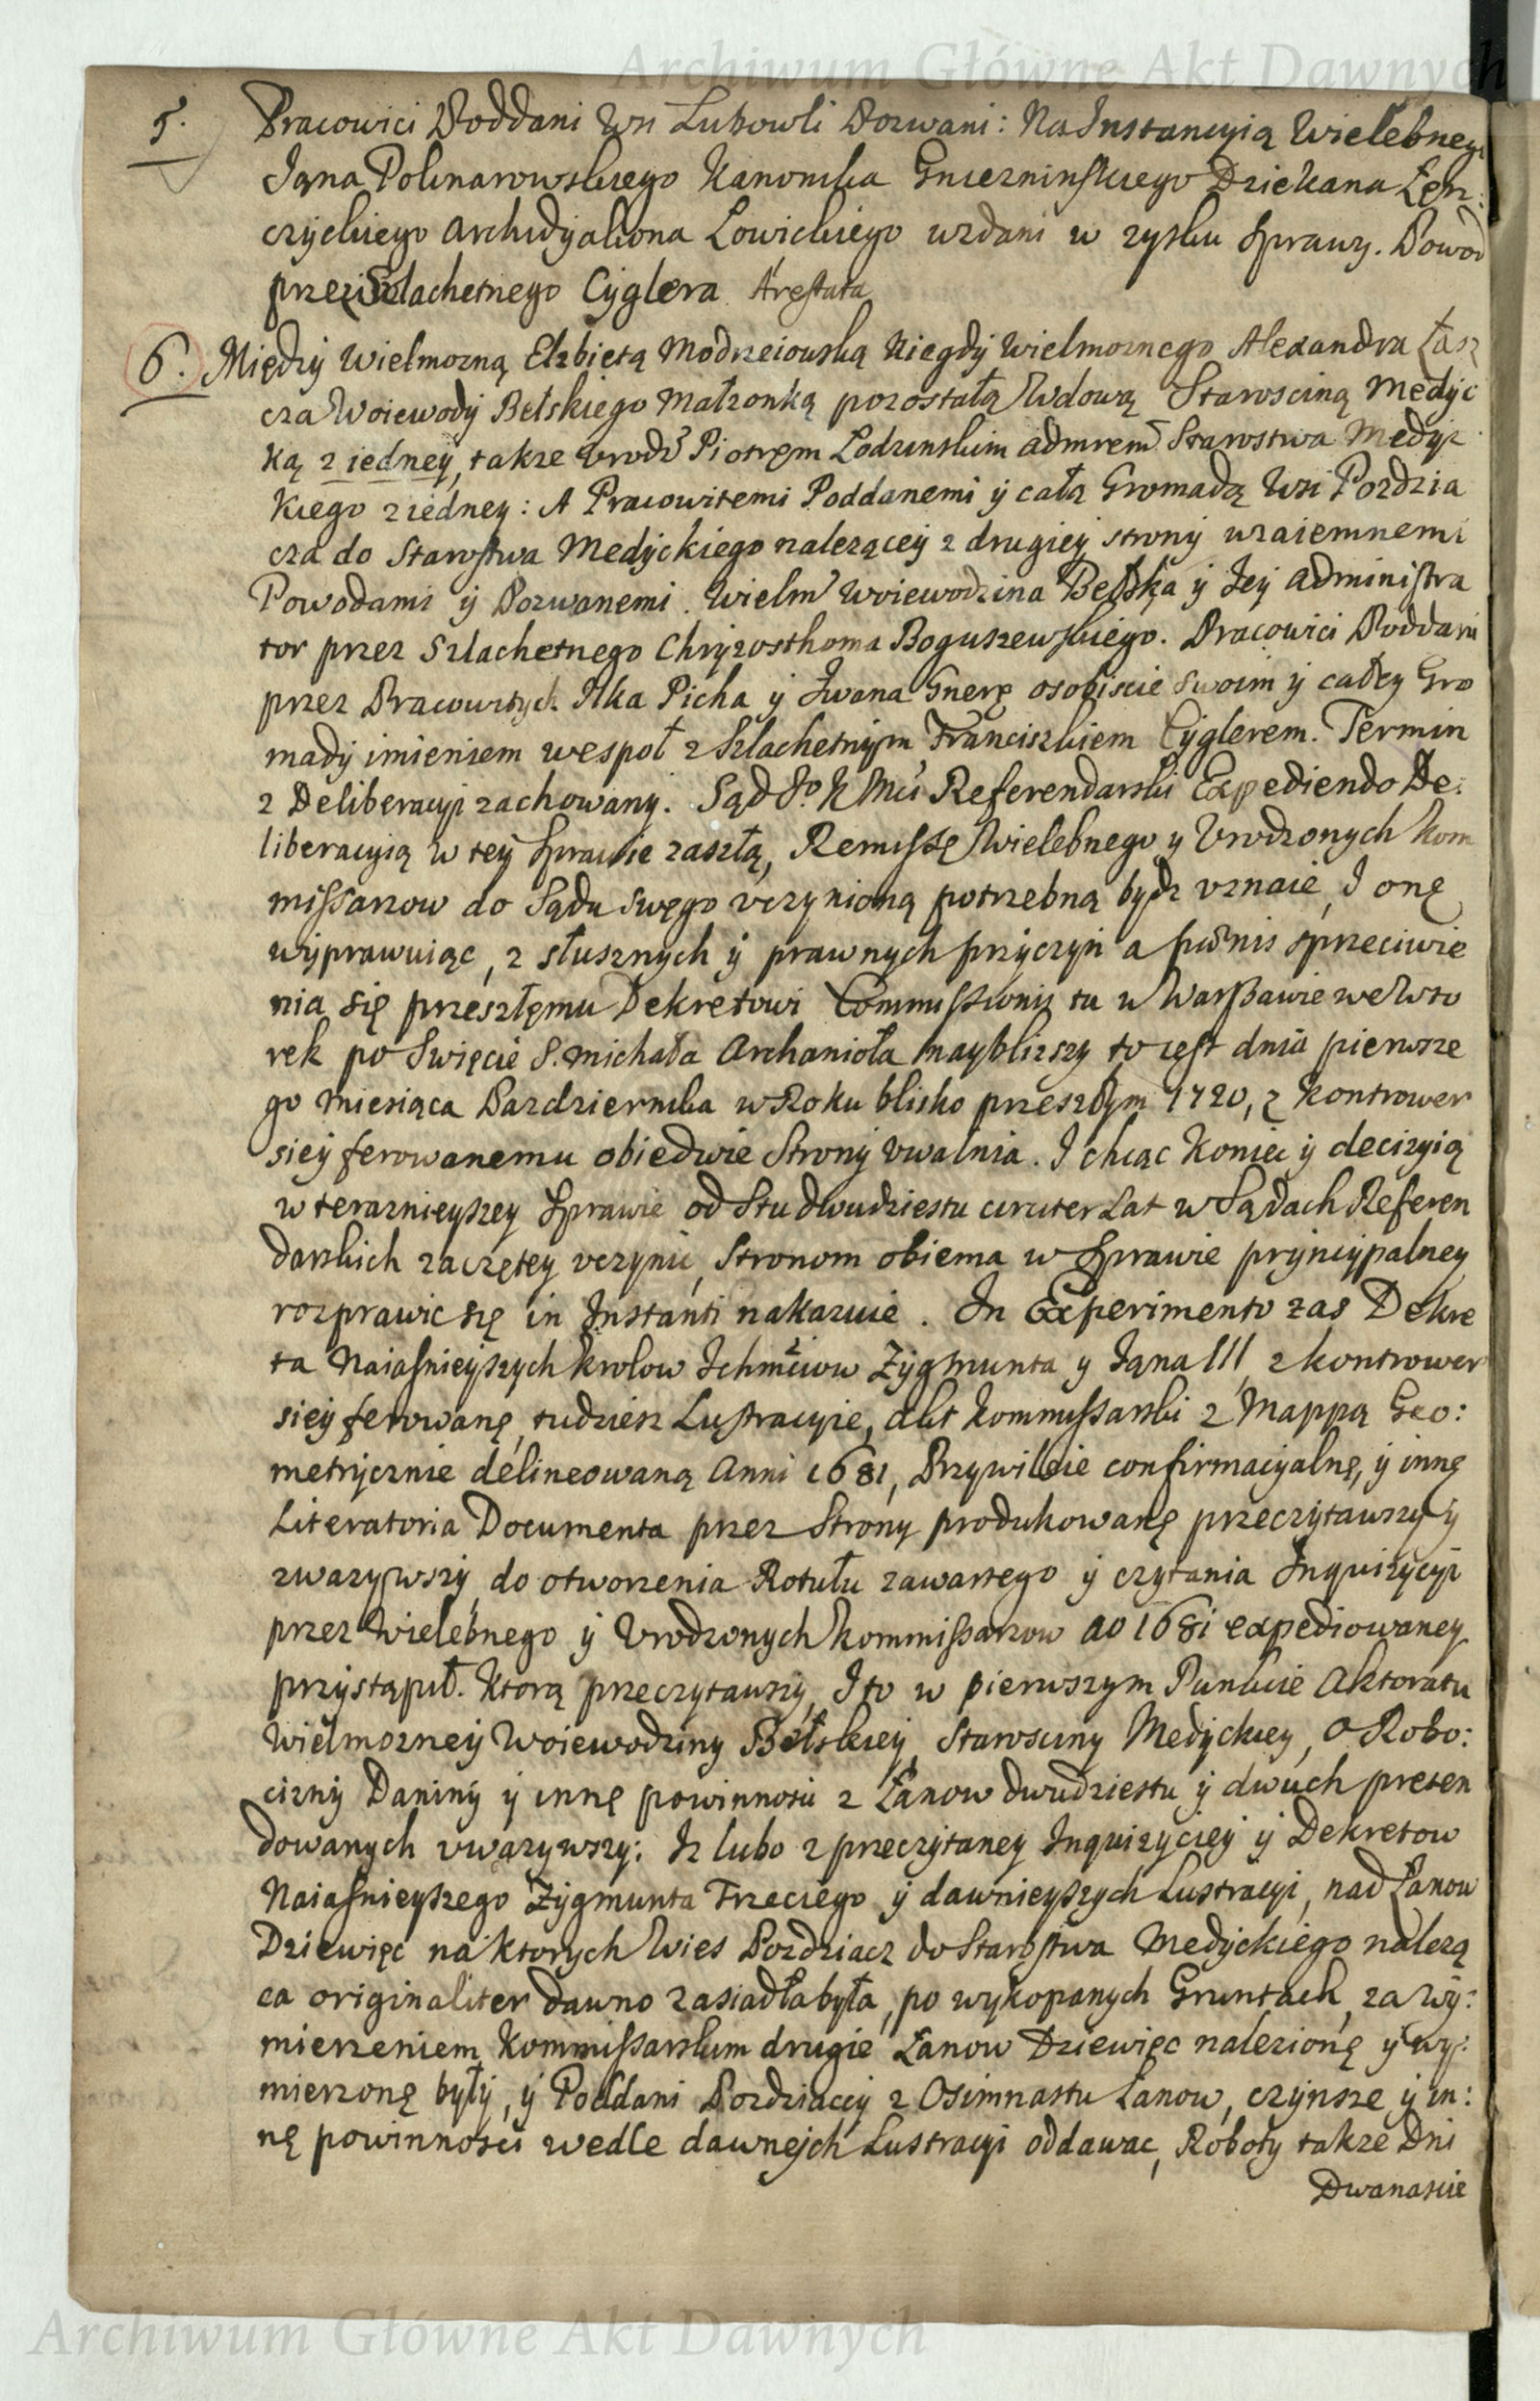 Archiwum Główne Akt Dawnych
5. Pracowici Poddani Wsi Lubowli Pozwani: Na Instancyią Wielebnego
Jąna Polinarowskiego Kanonika Gnieznińskiego Dziekana Łęn:
czyckiego Archidyakona Lowickiego wzdani w zysku sprawy. Powod
przez Szlachetnego Cyglera Arestata
6. Między Wielmozną Elzbietą Modrzeiowską Niegdy Wielmoznego Alexandra Łasz
cza Woiewody Bełskiego Małzonką pozostałą Wdową Starosciną Medyc
ką z iedney, takze Vrodz Piotrem Lodzinskim admrem Starostwa Medyc
kiego ziedney: A Pracowitemi Poddanemi y całą Gromadą Wsi Pozdzia
cza do Starostwa Medyckiego nalezącey z drugiey strony wzaiemnemi
Powodami y Pozwanemi. Wielm Woiewodzina Bełska y Jey Administra
tor przez Szlachetnego Chryzosthoma Boguszewskiego. Pracowici Poddani
przez Pracowitych Ilka Picha y Iwana Gnerę osobiscie swoim y całey Gro
mady imieniem wespoł z Szlachetnym Franciszkiem Cyglerem. Termin
z Deliberacyi zachowany. Sąd J. K Mci Referendarski Expediendo De:
liberacyią w tey sprawie zaszłą, Remissę Wielebnego y Vrodzonych Kom
missarzow do Sądu swego vczynioną potrzebną bydz vznaie, I onę
wyprawuiąc, z słusznych y prawnych przyczyn a pænis sprzeciwie
nia się przeszłemu Dekretowi Commissionis tu w Warszawie we Wto
rek po Swięcie S. Michała Archanioła naybliższy to iest dnia pierwsze
go Miesiąca Pazdziernika w Roku blisko przeszłym 1720, z kontrower
siey ferowanemu obiedwie Strony vwalnia. I chcąc koniec y decizyią
w terazniejszey sprawie od Stu dwudziestu czterter Lat w Sądach Referen
darskich zaczętey vczynic, Stronom obiema w sprawie pryncypalney
rozprawic się in Instanti nakazuie. In Experimento zas Dekre
ta Naiasnieyszych Krolow Ichmciow Zygmunta y Jąna III, z kontrower
siey ferowanę, tudziesz Lustracyie, akt kommissarski z Mappą Geo:
metrycznie delineowaną Anni 1681, Przywileie confirmacyalnę, y innę
Literatoria Documenta przez Strony produkowanę przeczytawszy y
zwazywszy, do otworzenia Rotułu zawartego y czytania Inquizycyi
przez Wielebnego y Vrodzonych Kommissarzow ao 1681 expediowaney
przystąpił. Ktorą przeczytawszy, I to w pierwszym Punkcie Aktoratu
Wielmozney Woiewodziny Bełskiey, Starosciny Medyckiey, O Robo:
cizny Daniny y innę powinnosci z Łanow dwudziestu y dwuch preten
dowanych vwazywszy: Iz lubo z przeczytaney Inquizyciey y Dekretow
Naiasnieyszego Zygmunta Trzeciego y dawnieyszych Lustracyi, nad Łanow
Dziewięc na ktorych Wies Pozdziacz do Starostwa Medyckiego nalezą
ca originaliter dawno zasiadła była, po wykopanych Gruntach, za wy:
mierzeniem Kommissarskim drugie Łanow Dziewięc nalezionę y wy:
mierzonę były, y Poddani Pozdziaccy z Osimnastu Łanow, czynsze y in:
nę powinnosci wedle dawnejch Lustracyi oddawac, Roboty takze Dni
Dwanascie
Archiwum Główne Akt Dawnych